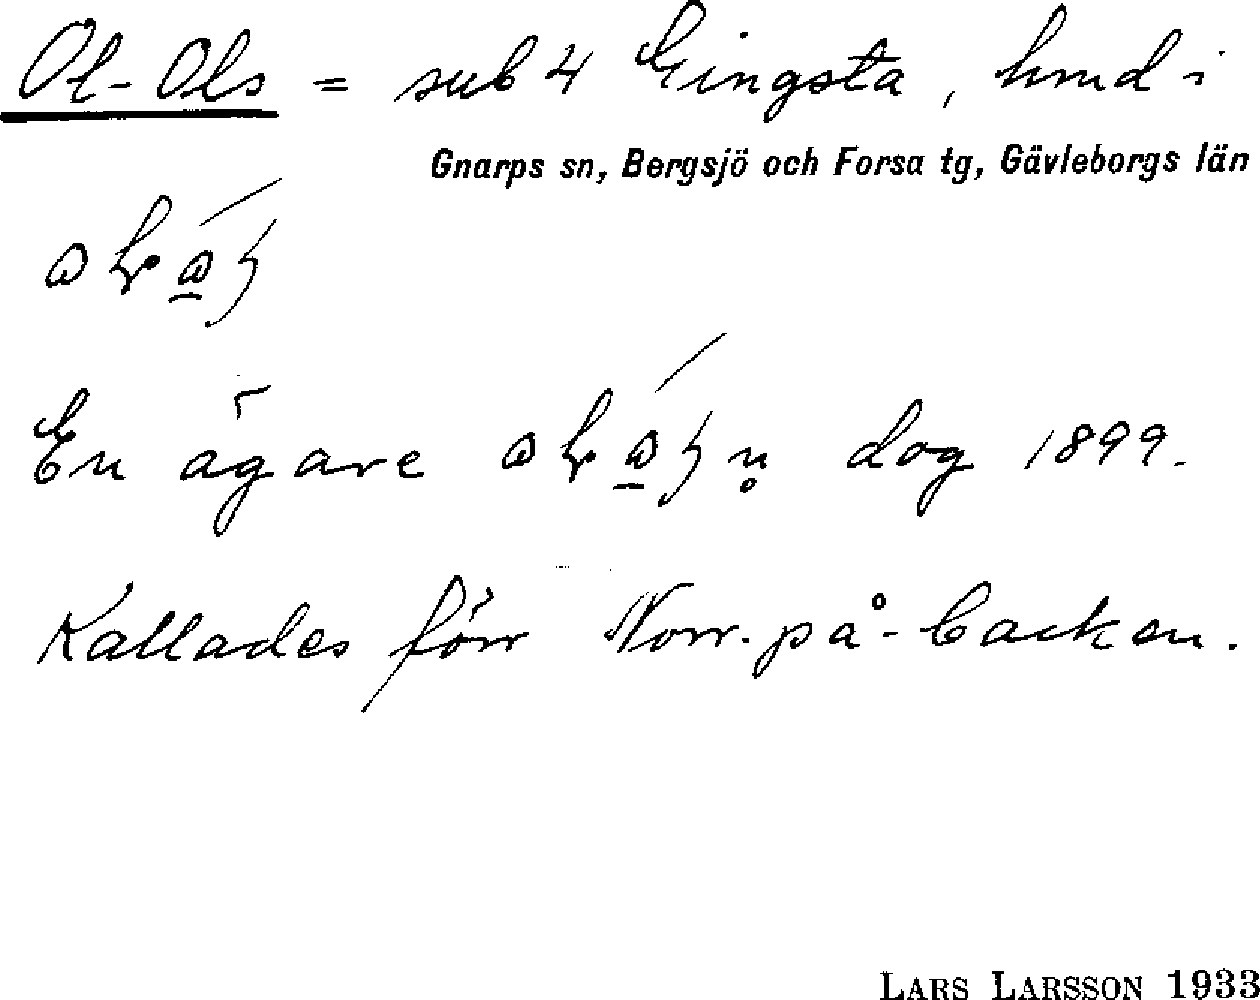 Ol-Ols = sub 4 Gingsta, hmd i
Gnarps sn, Bergsjö och Forsa tg, Gävleborgs län
En ägare dog 1899.
Kallades förr Norr-på-backen.
LARS LARSSON 1933